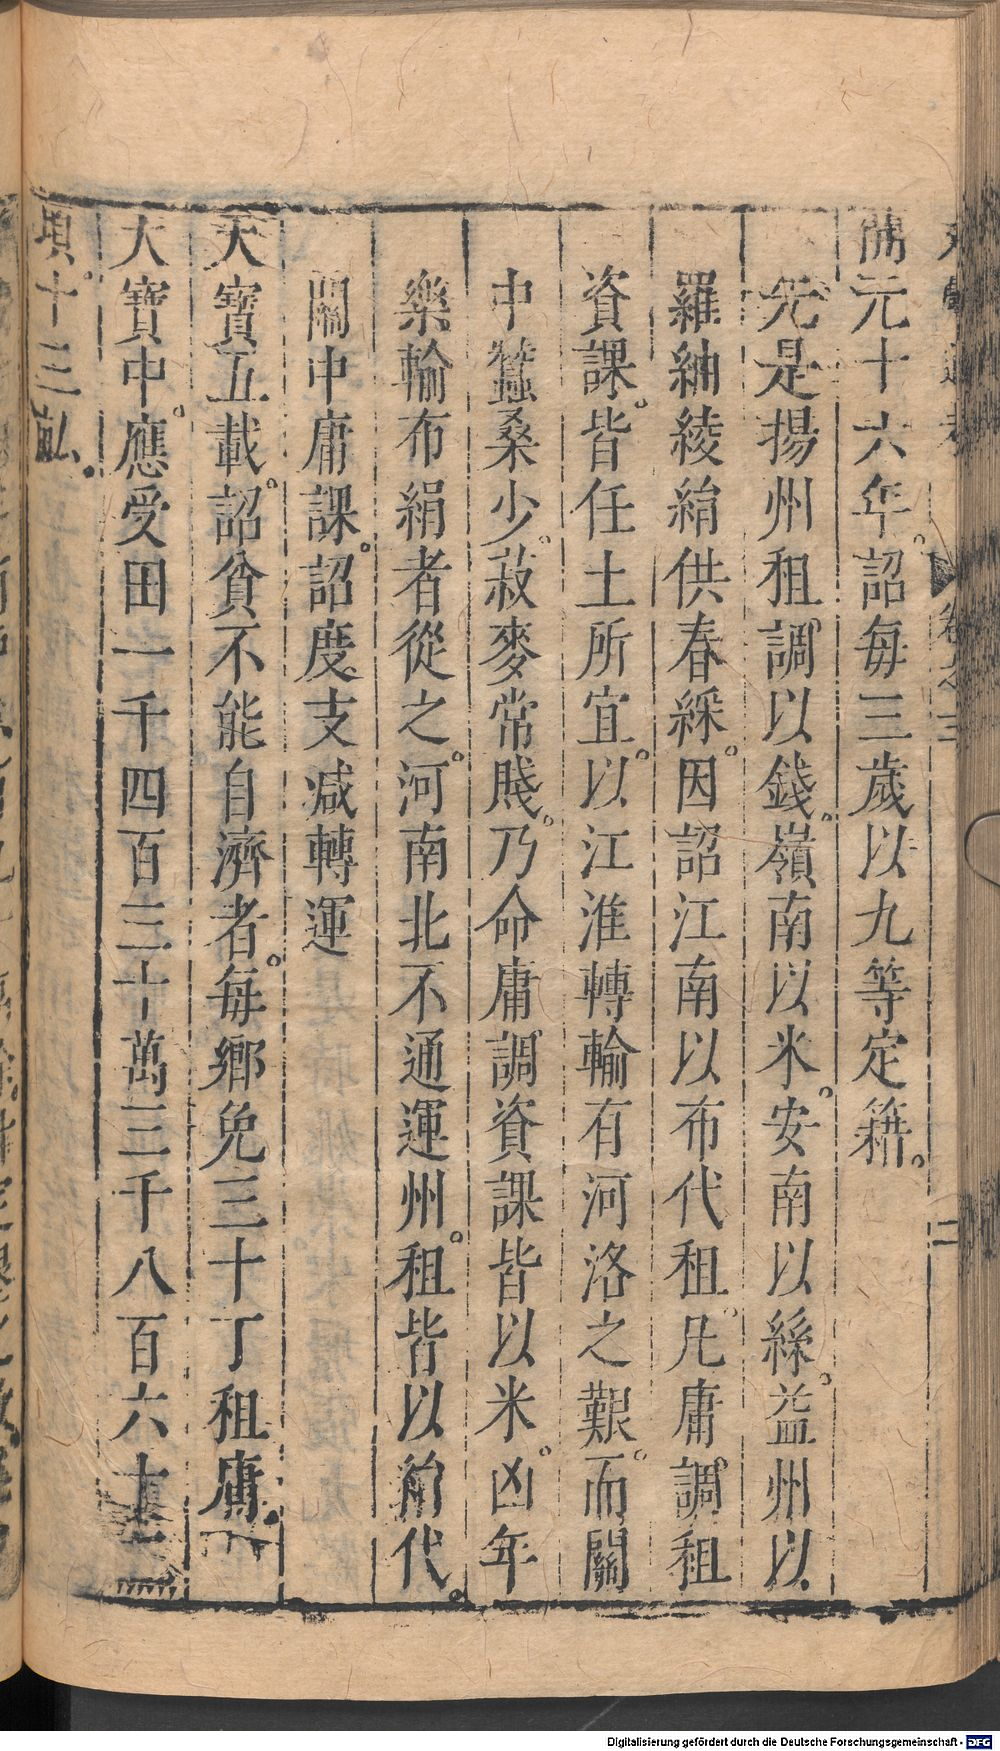 開元十六年。詔每三歲以九等定籍。
先是揚州租調以錢。嶺南以米。安南以絲。益州以
羅紬綾絹供春綵。因詔江南以布代租。凡庸調租
資課。皆任土所宜。以江淮轉輸有河洛之艱。而關
中蠶桑少。菽麥常賤。乃命庸調資課皆以米。凶年
樂輸布絹者從之。河南北不通運州。租皆以絹代。
關中庸課。詔度支減轉運
天寶五載。詔貧不能自濟者。每鄉免三十丁租庸。
大寶中。應受田一千四百三十萬三千八百六十三
頃。十三畝。
卷之三
二
Digitalisierung gefördert durch die Deutsche Forschungsgemeinschaft - DFG